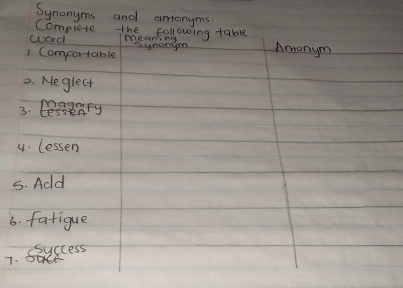 Synonyms and antonyms.
Complete the following table
Word Meaning Synonym Antonym
1. Comfortable
2. Neglect
3. Magnify Lessen
4. Lessen
5. Add
6. fatigue
7. Success